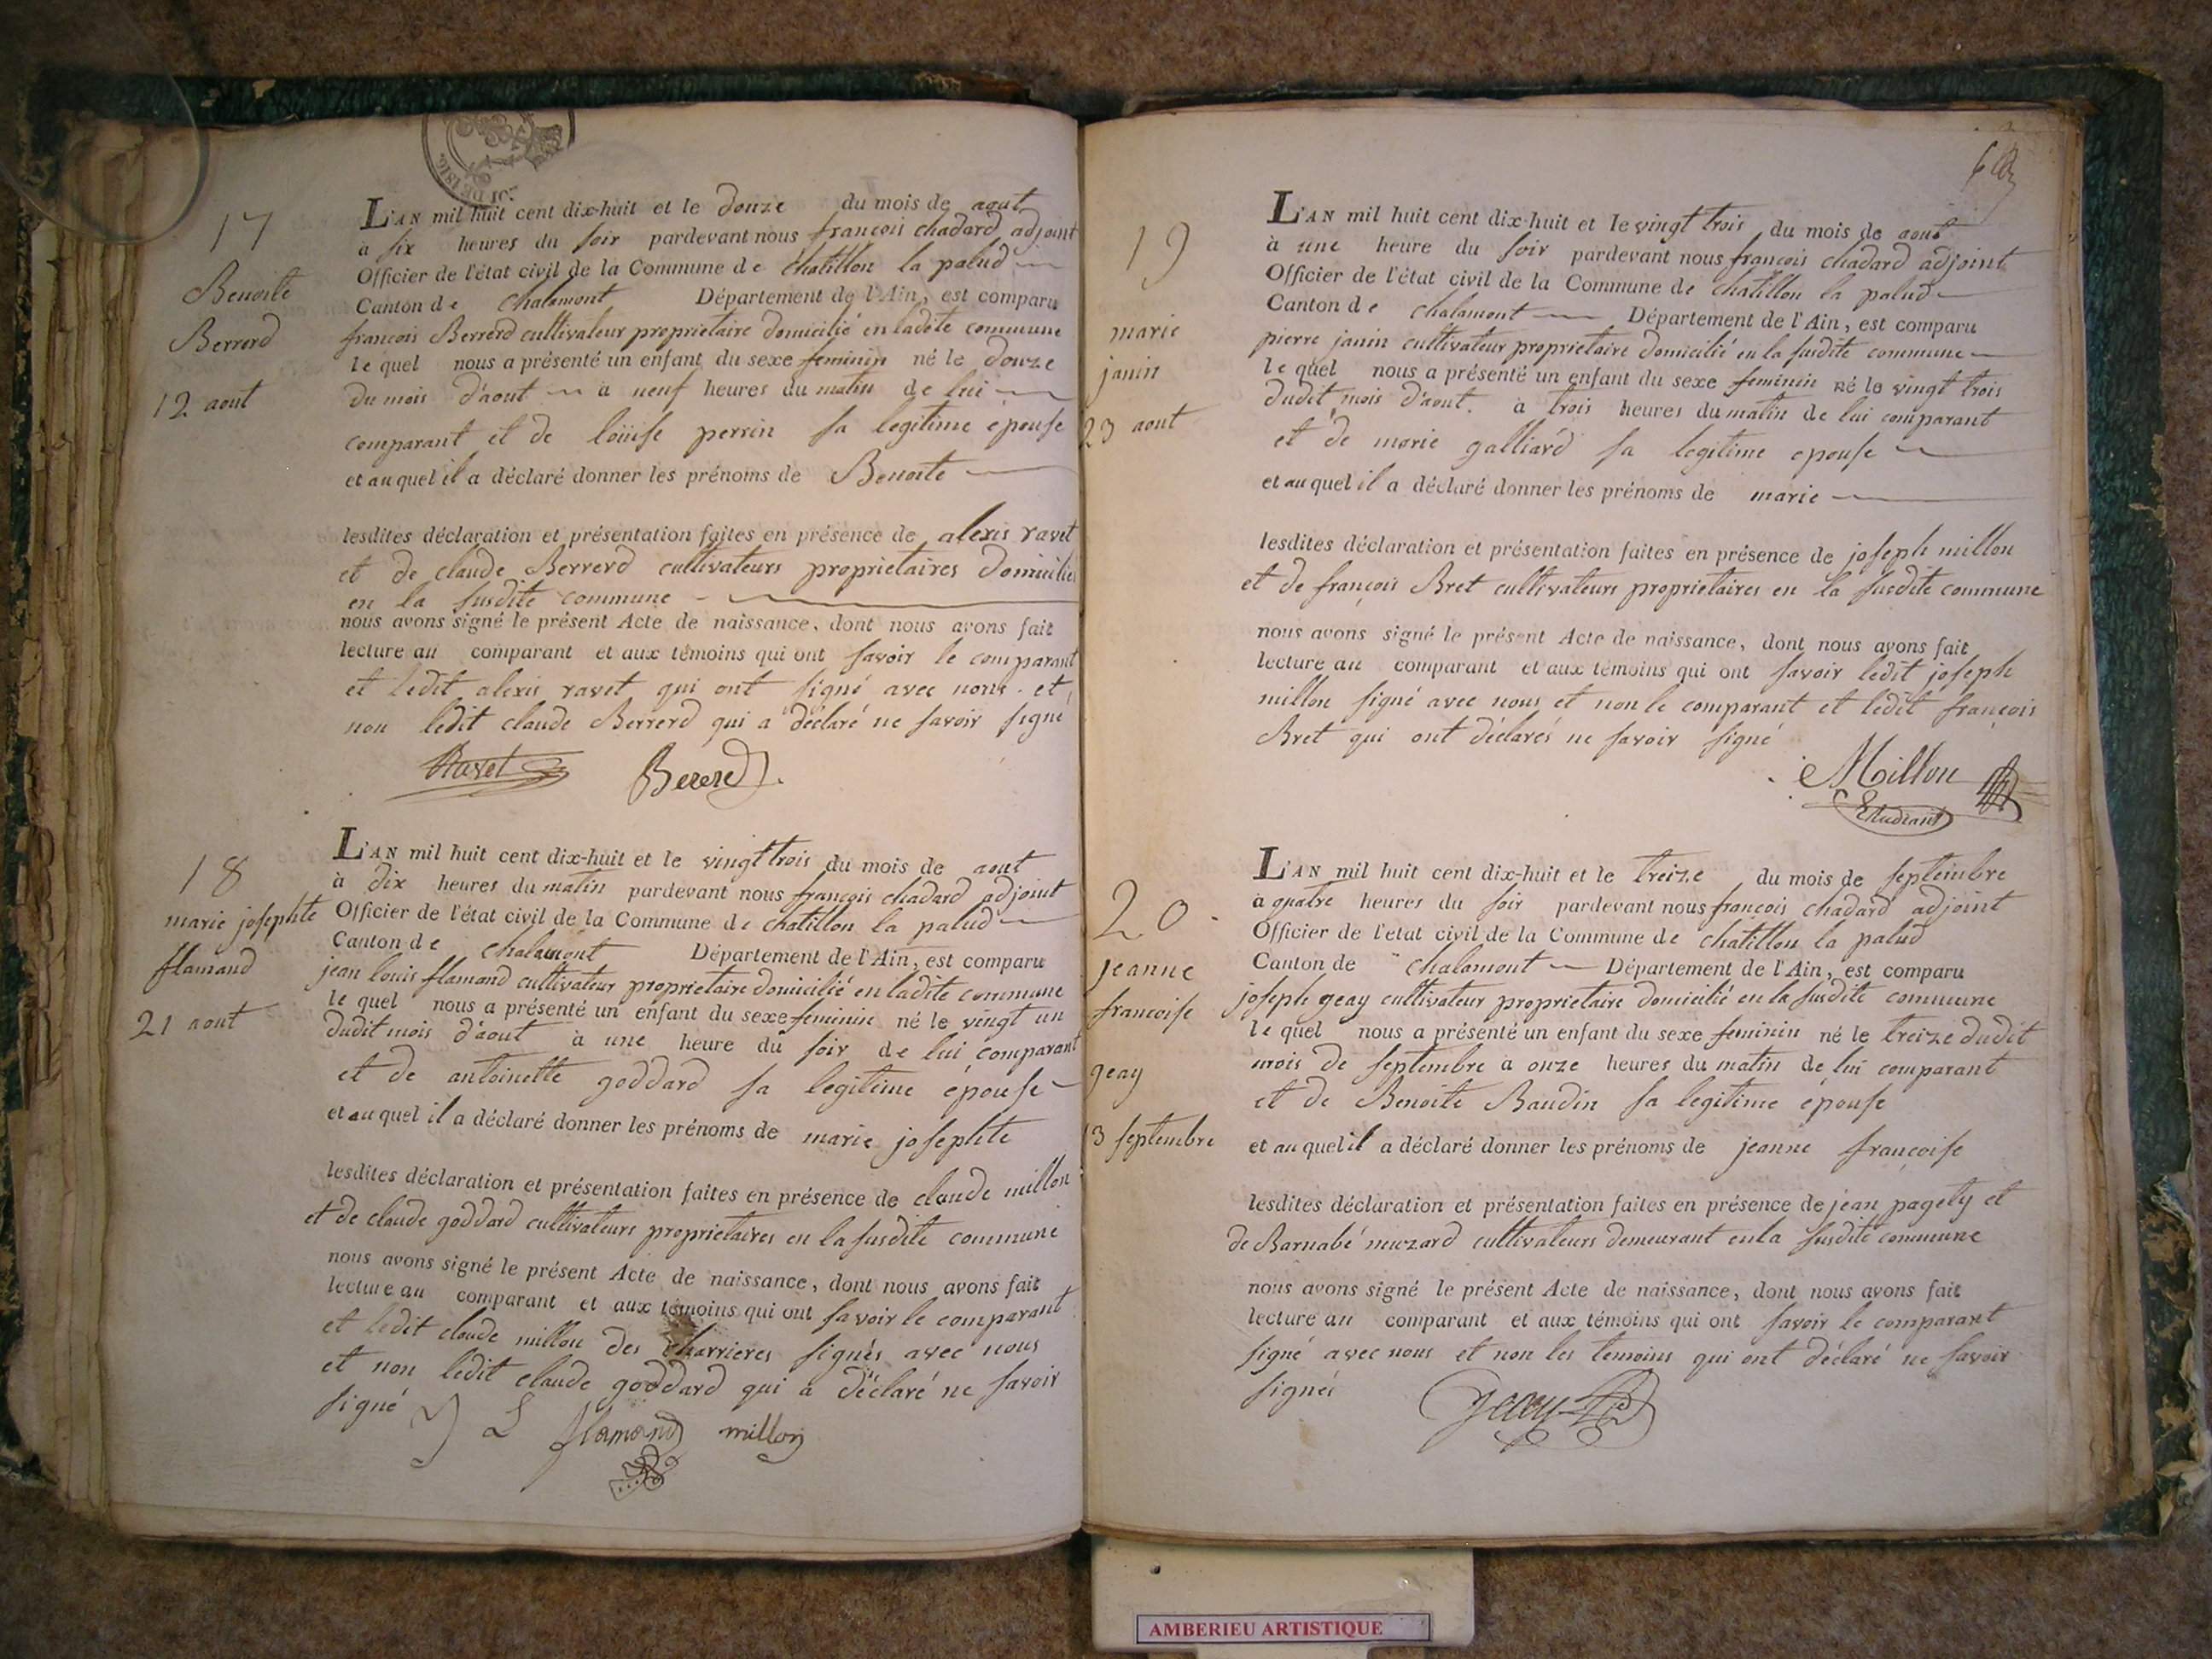 DE 1816.
17
Benoite
Berrerd
12 aout
L'AN mil huit cent dix-huit et le douze du mois de aout
à six heures du soir pardevant nous françois chadard adjoint
Officier de l'état civil de la Commune de chatillon la palud
Canton de chalamont Département de l'Ain, est comparu
françois Berrerd cultivateur proprietaire domicilié en ladite commune
le quel nous a présenté un enfant du sexe feminin né le douze
du mois d'aout à neuf heures du matin de lui
comparant et de loüise perrin sa legitime épouse
et au quel il a déclaré donner les prénoms de Benoite
lesdites déclaration et présentation faites en présence de alexis ravet
et de claude Berrerd cultivateurs proprietaires domiciliés
en la susdite commune
nous avons signé le présent Acte de naissance, dont nous avons fait
lecture au comparant et aux témoins qui ont savoir le comparant
et ledit alexis ravet qui ont signé avec nous et
non ledit claude Berrerd qui a déclaré ne savoir signé
Ravet Bererd
18
marie josephte
flamand
21 aout
L'AN mil huit cent dix-huit et le vingt trois du mois de aout
à dix heures du matin pardevant nous françois chadard adjoint
Officier de l'état civil de la Commune de chatillon la palud
Canton de chalamont Département de l'Ain, est comparu
jean louis flamand cultivateur proprietaire domicilié en ladite commune
le quel nous a présenté un enfant du sexe feminin né le vingt un
dudit mois d'aout à une heure du soir de lui comparant
et de antoinette goddard sa legitime épouse
et au quel il a déclaré donner les prénoms de marie josephte
lesdites déclaration et présentation faites en présence de claude millon
et de claude goddard cultivateurs proprietaires en la susdite commune
nous avons signé le présent Acte de naissance, dont nous avons fait
lecture au comparant et aux témoins qui ont savoir le comparant
et ledit claude millon des charrieres signés avec nous
et non ledit claude goddard qui a déclaré ne savoir
signé
L flamand millon
19
marie
janin
23 aout
L'AN mil huit cent dix-huit et le vingt trois du mois de aout
à une heure du soir pardevant nous françois chadard adjoint
Officier de l'état civil de la Commune de chatillon la palud
Canton de chalamont Département de l'Ain, est comparu
pierre janin cultivateur proprietaire domicilié en la susdite commune
le quel nous a présenté un enfant du sexe feminin né le vingt trois
dudit mois d'aout. à trois heures du matin de lui comparant
et de marie galliard sa legitime epouse
et au quel il a déclaré donner les prénoms de marie
lesdites déclaration et présentation faites en présence de joseph millon
et de françois Bret cultivateurs proprietaires en la susdite commune
nous avons signé le présent Acte de naissance, dont nous avons fait
lecture au comparant et aux témoins qui ont savoir ledit joseph
millon signé avec nous et non le comparant et ledit françois
Bret qui ont déclarés ne savoir signé
Moillon
Etudiant
20
jeanne
francoise
geay
13 septembre
L'AN mil huit cent dix-huit et le treize du mois de septembre
à quatre heures du soir pardevant nous françois chadard adjoint
Officier de l'état civil de la Commune de chatillon la palud
Canton de chalamont Département de l'Ain, est comparu
joseph geay cultivateur proprietaire domicilié en la susdite commune
le quel nous a présenté un enfant du sexe feminin né le treize dudit
mois de septembre à onze heures du matin de lui comparant
et de Benoite Baudin sa legitime épouse
et au quel il a déclaré donner les prénoms de jeanne françoise
lesdites déclaration et présentation faites en présence de jean pagety et
de Barnabé muzard cultivateurs demeurant en la susdite commune
nous avons signé le présent Acte de naissance, dont nous avons fait
lecture au comparant et aux témoins qui ont savoir le comparant
signé avec nous et non les temoins qui ont déclaré ne savoir
signés
geay
AMBERIEU ARTISTIQUE